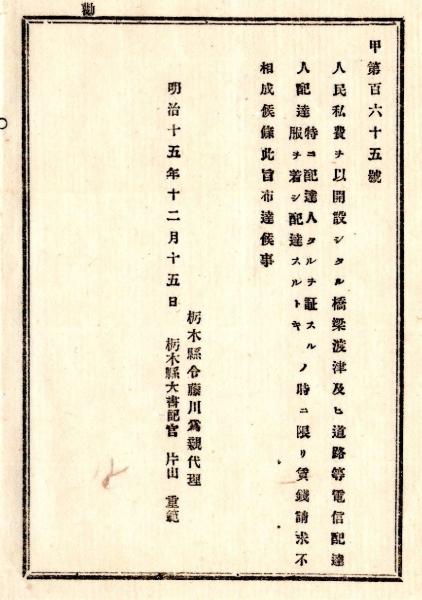 勸
甲第百六十五號
人民私費ヲ以開設シタル橋梁渡津及ヒ道路等電信配達
人配達特ニ配達人タルヲ証スルノ時ニ限リ賃錢請求不
服ヲ着シ配達スルトキ
相成候條此旨布達候事
明治十五年十二月十五日
栃木縣令藤川爲親代理
栃木縣大書記官 片山 重範